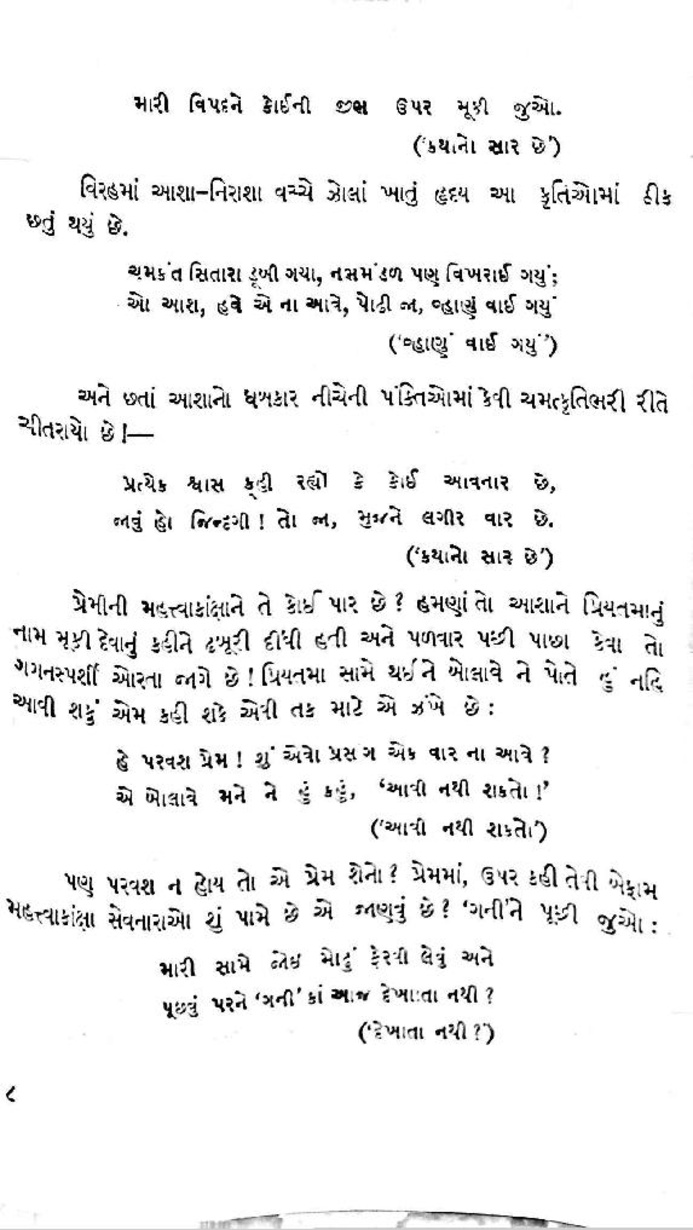 મારી વિપદને કોઈની જીભ ઉપર મૂકી જુઓ.
(‘કથાનો સાર છે’)
વિરહમાં આશા–નિરાશા વચ્ચે ઝોલાં ખાતું હૃદય આ કૃતિઓમાં ઠીક
છતું થયું છે.
ચમકંત સિતારા ડૂબી ગયા, નસમંડળ પણ વિખરાઈ ગયું;
ઓ આશ, હવે એ ના આવે, પોઢી જા, વ્હાણું વાઈ ગયું
(‘વ્હાણું વાઈ ગયું’)
અને છતાં આશાનો ધબકાર નીચેની પંક્તિઓમાં કેવી ચમત્કૃતિભરી રીતે
ચીતરાયો છે!—
પ્રત્યેક શ્વાસ કહી રહ્યો કે કોઈ આવનાર છે,
જાવું હો જિન્દગી! તો જા, મુજને લગીર વાર છે.
(‘કથાનો સાર છે’)
પ્રેમીની મહત્ત્વાકાંક્ષાને તે કોઈ પાર છે? હમણાં તો આશાને પ્રિયતમાનું
નામ મૂકી દેવાનું કહીને ઢબૂરી દીધી હતી અને પળવાર પછી પાછા કેવા તો
ગગનસ્પર્શી ઓરતા જાગે છે! પ્રિયતમા સામે થઈને બોલાવે ને પોતે હું નહિ
આવી શકું એમ કહી શકે એવી તક માટે એ ઝંખે છે:
હે પરવશ પ્રેમ! શું એવો પ્રસંગ એક વાર ના આવે?
એ બોલાવે મને ને હું કહું, ‘આવી નથી શકતો!’
(‘આવી નથી શકતો’)
પણ પરવશ ન હોય તો એ પ્રેમ શેનો? પ્રેમમાં, ઉપર કહી તેવી બેફામ
મહત્ત્વાકાંક્ષા સેવનારાઓ શું પામે છે એ જાણવું છે? ‘ગની’ને પૂછી જુઓ:
મારી સામે જોઇ મોઢું ફેરવી લેવું અને
પૂછવું પરને ‘ગની’ કાં આજ દેખાતા નથી?
(‘દેખાતા નથી?’)
૮